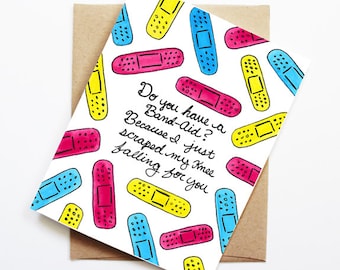 Do you have a
Band-Aid?
Because I just
scraped my knee
falling for you